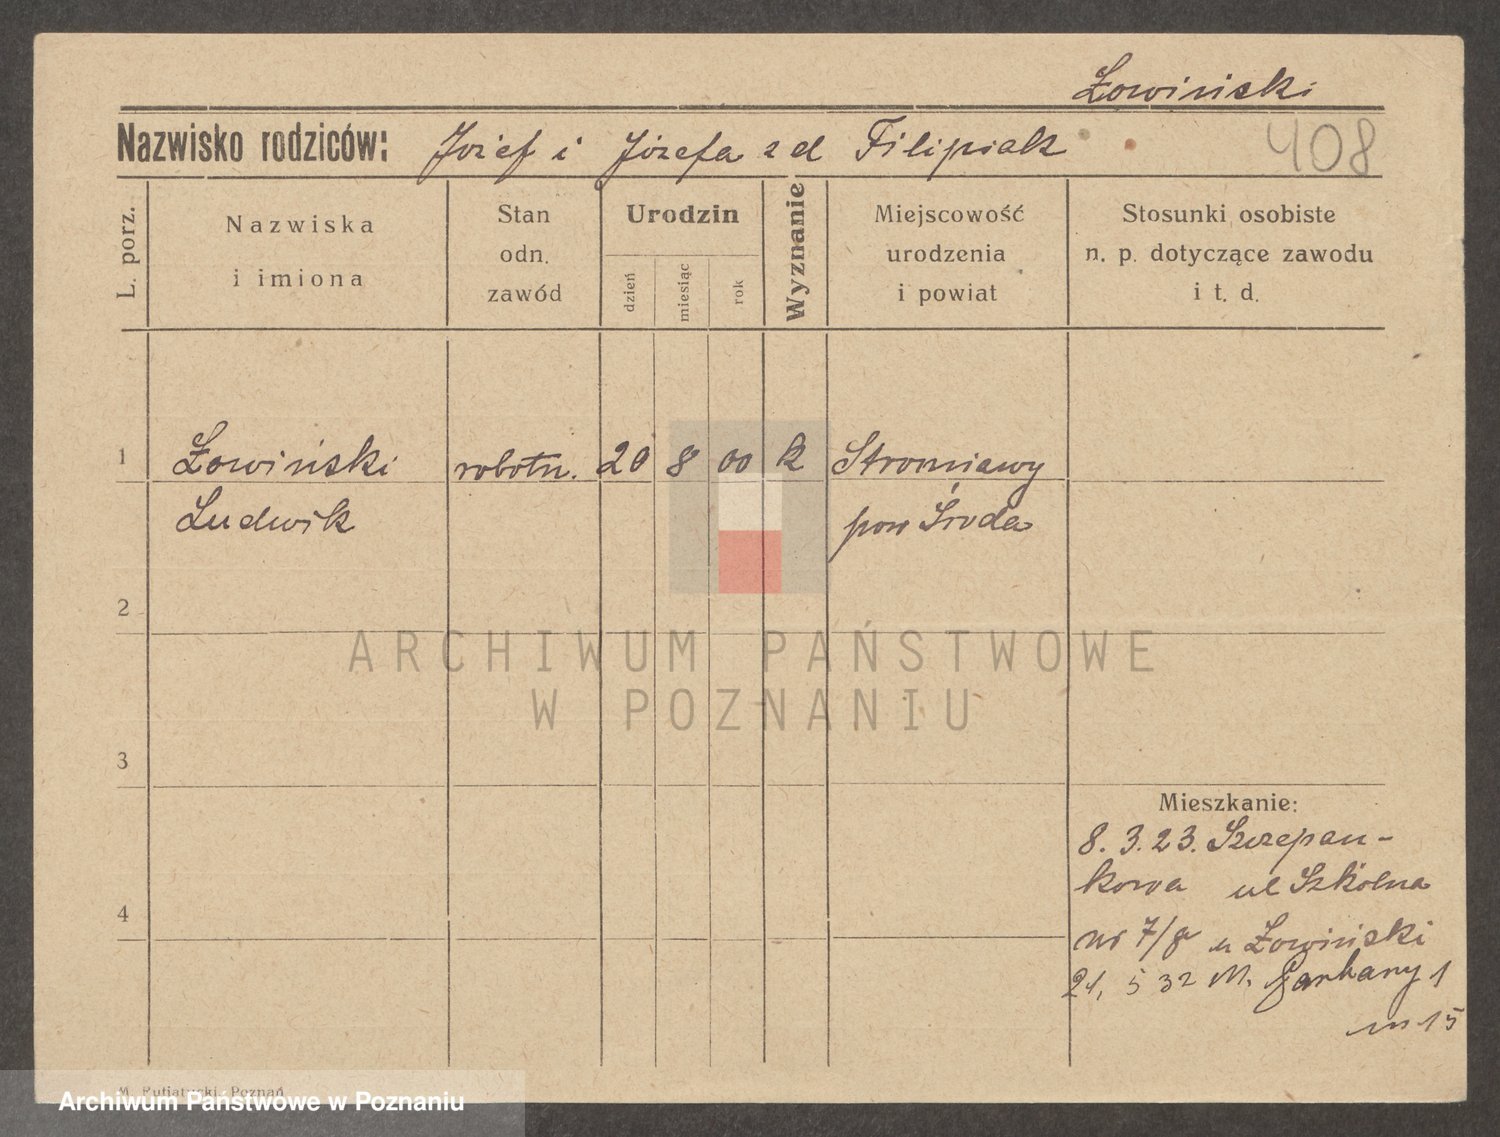 Łowiński
Nazwisko rodziców: Józef i Józefa z d Filipiak
408
L. porz.
Nazwiska
i imiona
Stan
odn.
zawód
Urodzin
dzień
miesiąc
rok
Wyznanie
Miejscowość
urodzenia
i powiat
Stosunki osobiste
n. p. dotyczące zawodu
i t. d.
1
Łowiński
Ludwik
robotn.
20
8
00
k
Stroniawy
pow Środa
2
3
4
Mieszkanie:
8. 3. 23. Szczepan-
kowa ul Szkólna
nr 7/8 u Łowiński
21, 5 32 M. Garbary 1
m 15
M. Putiatycki, Poznań
ARCHIWUM PAŃSTWOWE
W POZNANIU
Archiwum Państwowe w Poznaniu